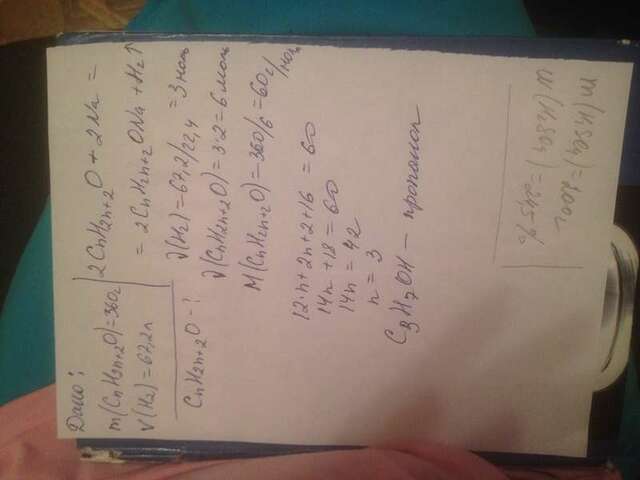 Дано:
m(CnH2n+2O)=360г
V(H2)=67,2л
CnH2n+2O - ?
2CnH2n+2O + 2Na =
= 2CnH2n+2ONa + H2↑
ν(H2)=67,2/22,4 = 3 моль
ν(CnH2n+2O)=3·2=6 моль
M(CnH2n+2O)=360/6=60г/моль
12·n+2n+2+16 = 60
14n+18=60
14n = 42
n = 3
C3H7OH — пропанол
=200г
=24,5%